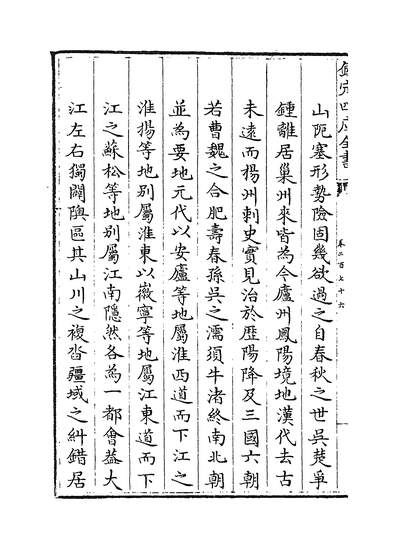 欽定四庫全書
卷二百七十六
山阨塞形勢險固幾欲過之自春秋之世吳楚爭
鍾離居巢州來皆為今廬州鳳陽境地漢代去古
未遠而楊州刺史實見治於歷陽降及三國六朝
若曹魏之合肥壽春孫吳之濡須牛渚終南北朝
並為要地元代以安廬等地屬淮西道而下江之
淮揚等地別屬淮東以徽寧等地屬江東道而下
江之蘇松等地別屬江南隱然各為一都會葢大
江左右獨闢陝區其山川之複沓疆域之糾錯居